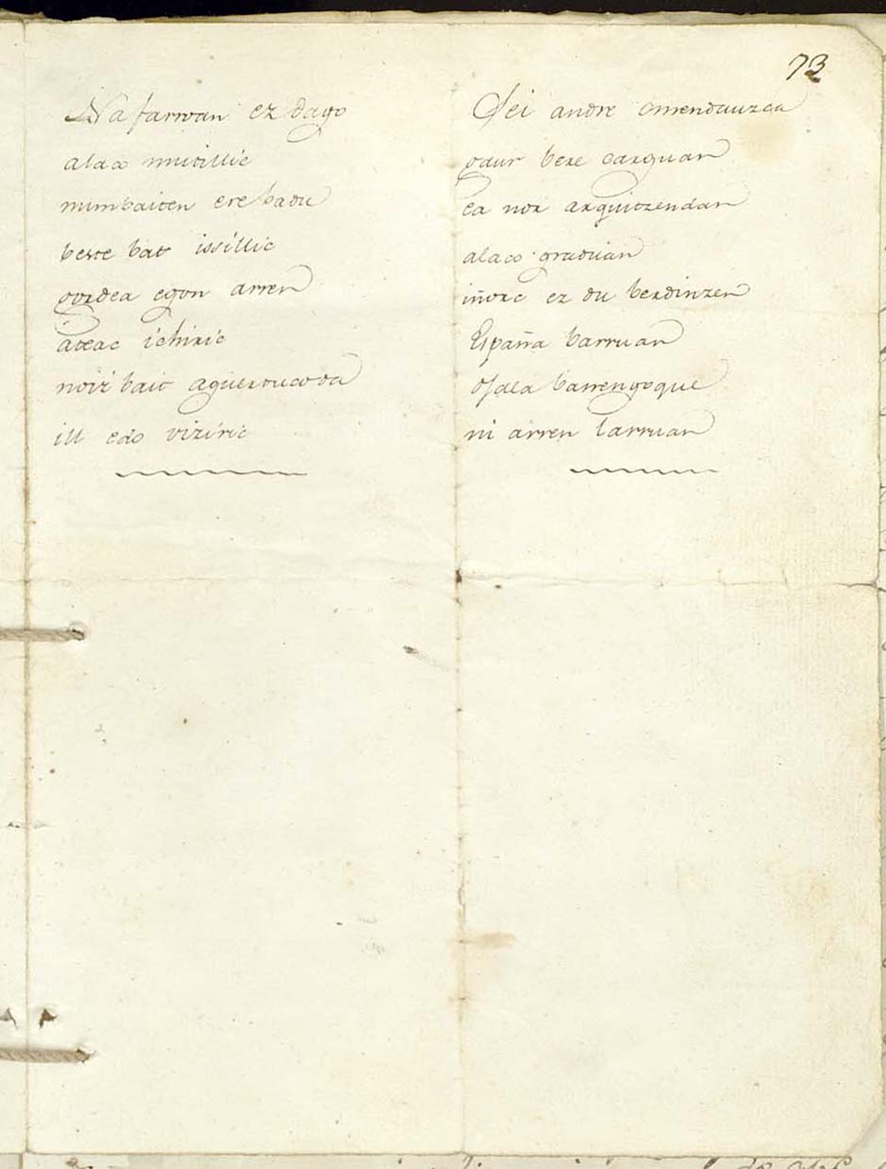 73
Nafarroan ez dago
alaco mutillic
numbaiten ere badu
beste bat issillic
gordea egon arren
ateac ichiric
noiz bait aguertuco da
ill edo viziric
Sei andre omendauzca
gaur bere carguan
ea nor arguitzendan
alaco graduan
iñorc ez du berdinzen
España barruan
Ojala barrengoque
ni arren larruan